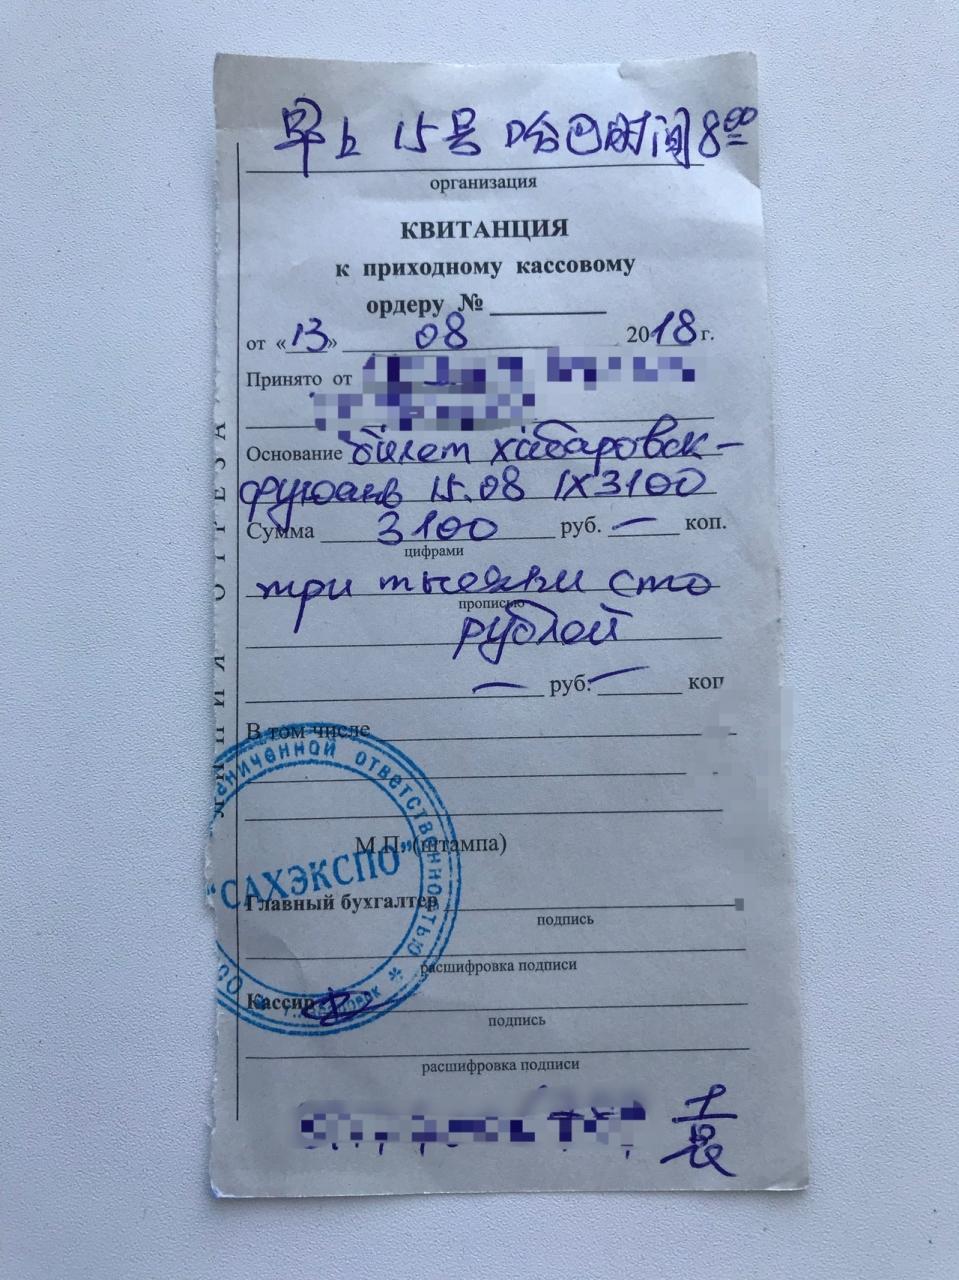 早上 15号 哈巴时间 8⁰⁰
организация
КВИТАНЦИЯ
к приходному кассовому
ордеру №
от «13» 08 2018 г.
Принято от
Основание билет Хабаровск-
Фуюань 15.08 1X3100
Сумма 3100 руб. — коп.
цифрами
три тысячи сто
прописью
рублей
— руб. — коп
В том числе
М.П. (штампа)
аниченной ответственностью *
"САХЭКСПО"
Главный бухгалтер
подпись
расшифровка подписи
Кассир
подпись
расшифровка подписи